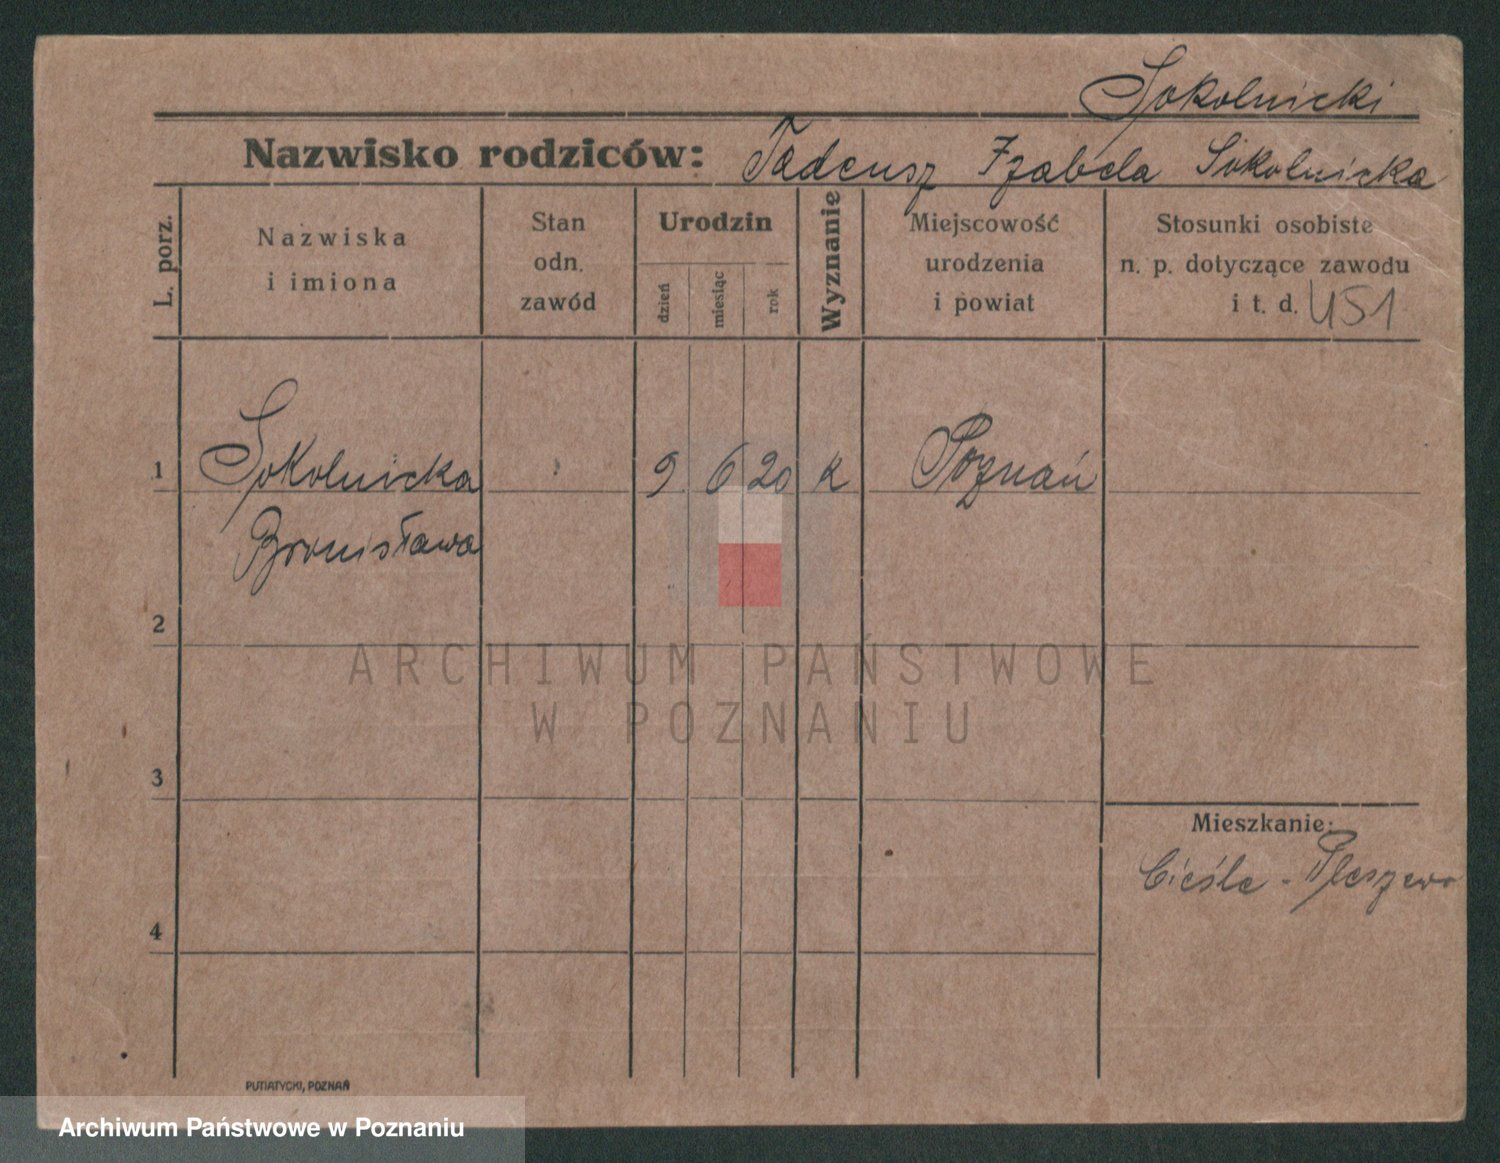 Sokolnicki
Nazwisko rodziców: Tadeusz Izabela Sokolnicka
L. porz.
Nazwiska
i imiona
Stan
odn.
zawód
Urodzin
dzień
miesiąc
rok
Wyznanie
Miejscowość
urodzenia
i powiat
Stosunki osobiste
n. p. dotyczące zawodu
i t. d. U51
1 Sokolnicka 9 6 20 k Poznań
Bronisława
2
ARCHIWUM PAŃSTWOWE
W POZNANIU
3
Mieszkanie:
Cieśle - Pleszewo
4
PUTIATYCKI, POZNAŃ
Archiwum Państwowe w Poznaniu